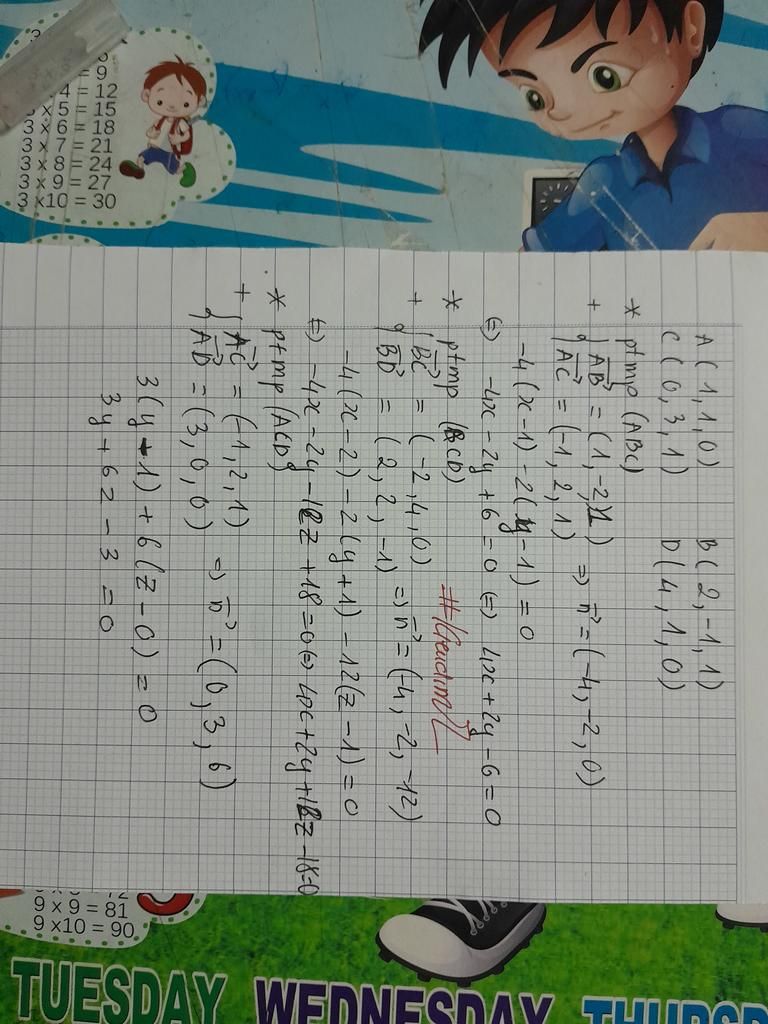 3
= 9
4 = 12
3 x 5 = 15
3 x 6 = 18
3 x 7 = 21
3 x 8 = 24
3 x 9 = 27
3 x10 = 30
A(1,1,0) B(2,-1,1)
C(0,3,1) D(4,1,0)
* ptmp (ABC)
+ { AB→ = (1,-2,1)
AC→ = (-1,2,1) => n→ = (-4,-2,0)
-4(x-1) - 2(y-1) = 0
(=) -4x - 2y + 6 = 0 (=) 4x + 2y - 6 = 0
* ptmp (BCD)
+ { BC→ = (-2,4,0)
BD→ = (2,2,-1) => n→ = (-4,-2,-12)
-4(x-2) - 2(y+1) - 12(z-1) = 0
(=) -4x - 2y - 12z + 18 = 0 (=) 4x + 2y + 12z - 18 = 0
* ptmp (ACD)
+ { AC→ = (-1,2,1)
AD→ = (3,0,0) => n→ = (0,3,6)
3(y-1) + 6(z-0) = 0
3y + 6z - 3 = 0
9 x 9 = 81
9 x10 = 90
TUESDAY WEDNESDAY THURSD